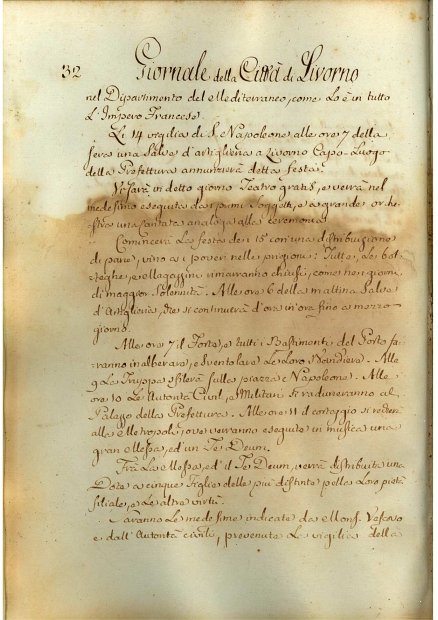 32 Giornale della Città di Livorno
nel Dipartimento del Mediterraneo, come Lo è in tutto
L'Impero Francese.
Li 14 vigilia di S. Napoleone alle ore 7 della
sera una Salve d'artiglieria a Livorno Capo-Luogo
della Prefettura annunzierà detta festa.
Vi sarà in detto giorno Teatro gratis, e verrà nel
medesimo eseguita da primi Soggetti, e a grande orche-
stra una Cantata analoga alla ceremonia.
Comincerà La festa dei 15 con una distribuzione
di pane, vino ai poveri nelle prigioni: Tutte Le bot-
teghe, e Magazzini rimarranno chiusi, come nei giorni
di maggior Solennità. Alle ore 6 della mattina Salva
d'Artiglieria, che si continuerà d'ora in ora fino a mezzo-
giorno.
Alle ore 7 il Forte, e tutti i Bastimenti del Porto fa-
ranno inalberare, e Sventolare Le Loro Bandiere. Alle
9 La Truppa sfilerà sulla piazza Napoleone. Alle
ore 10 Le Autorità Civili, e Militari si raduneranno al
Palazzo della Prefettura. Alle ore 11 il corteggio si renderà
alla Metropoli, ove verranno eseguite in musica una
gran Messa, ed un Te Deum.
Fra La Messa, ed il Te Deum, verrà distribuita una
Dote a cinque Figlie delle più distinte pella Loro pietà
filiale, e Le altre virtù.
Saranno Le medesime indicate da Mons. Vescovo
e dall'Autorità civili, prevenute La vigilia della